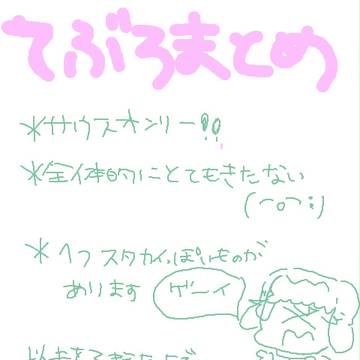 てぶろまとめ
*サウスオンリー!!
*全体的にとてもきたない
(⌒o⌒;)
*ヘタスタカイ,ぽいものが
あります
ゲーイ